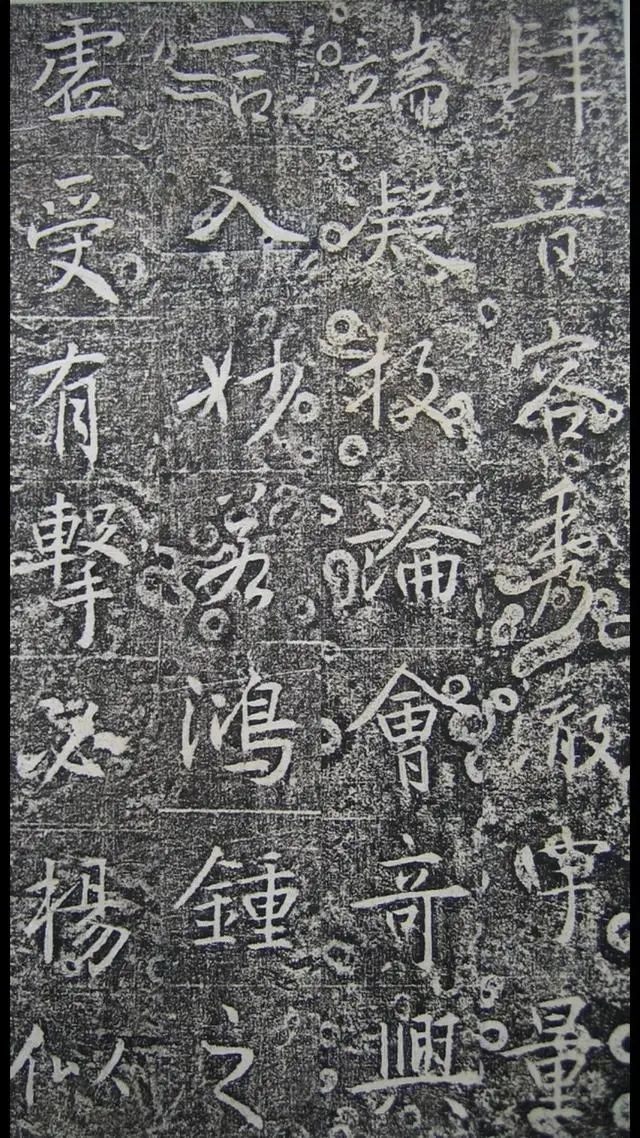 肆音容秀徹宇量
端凝投論會奇興
言入妙若鴻鍾之
虛受有擊必楊似